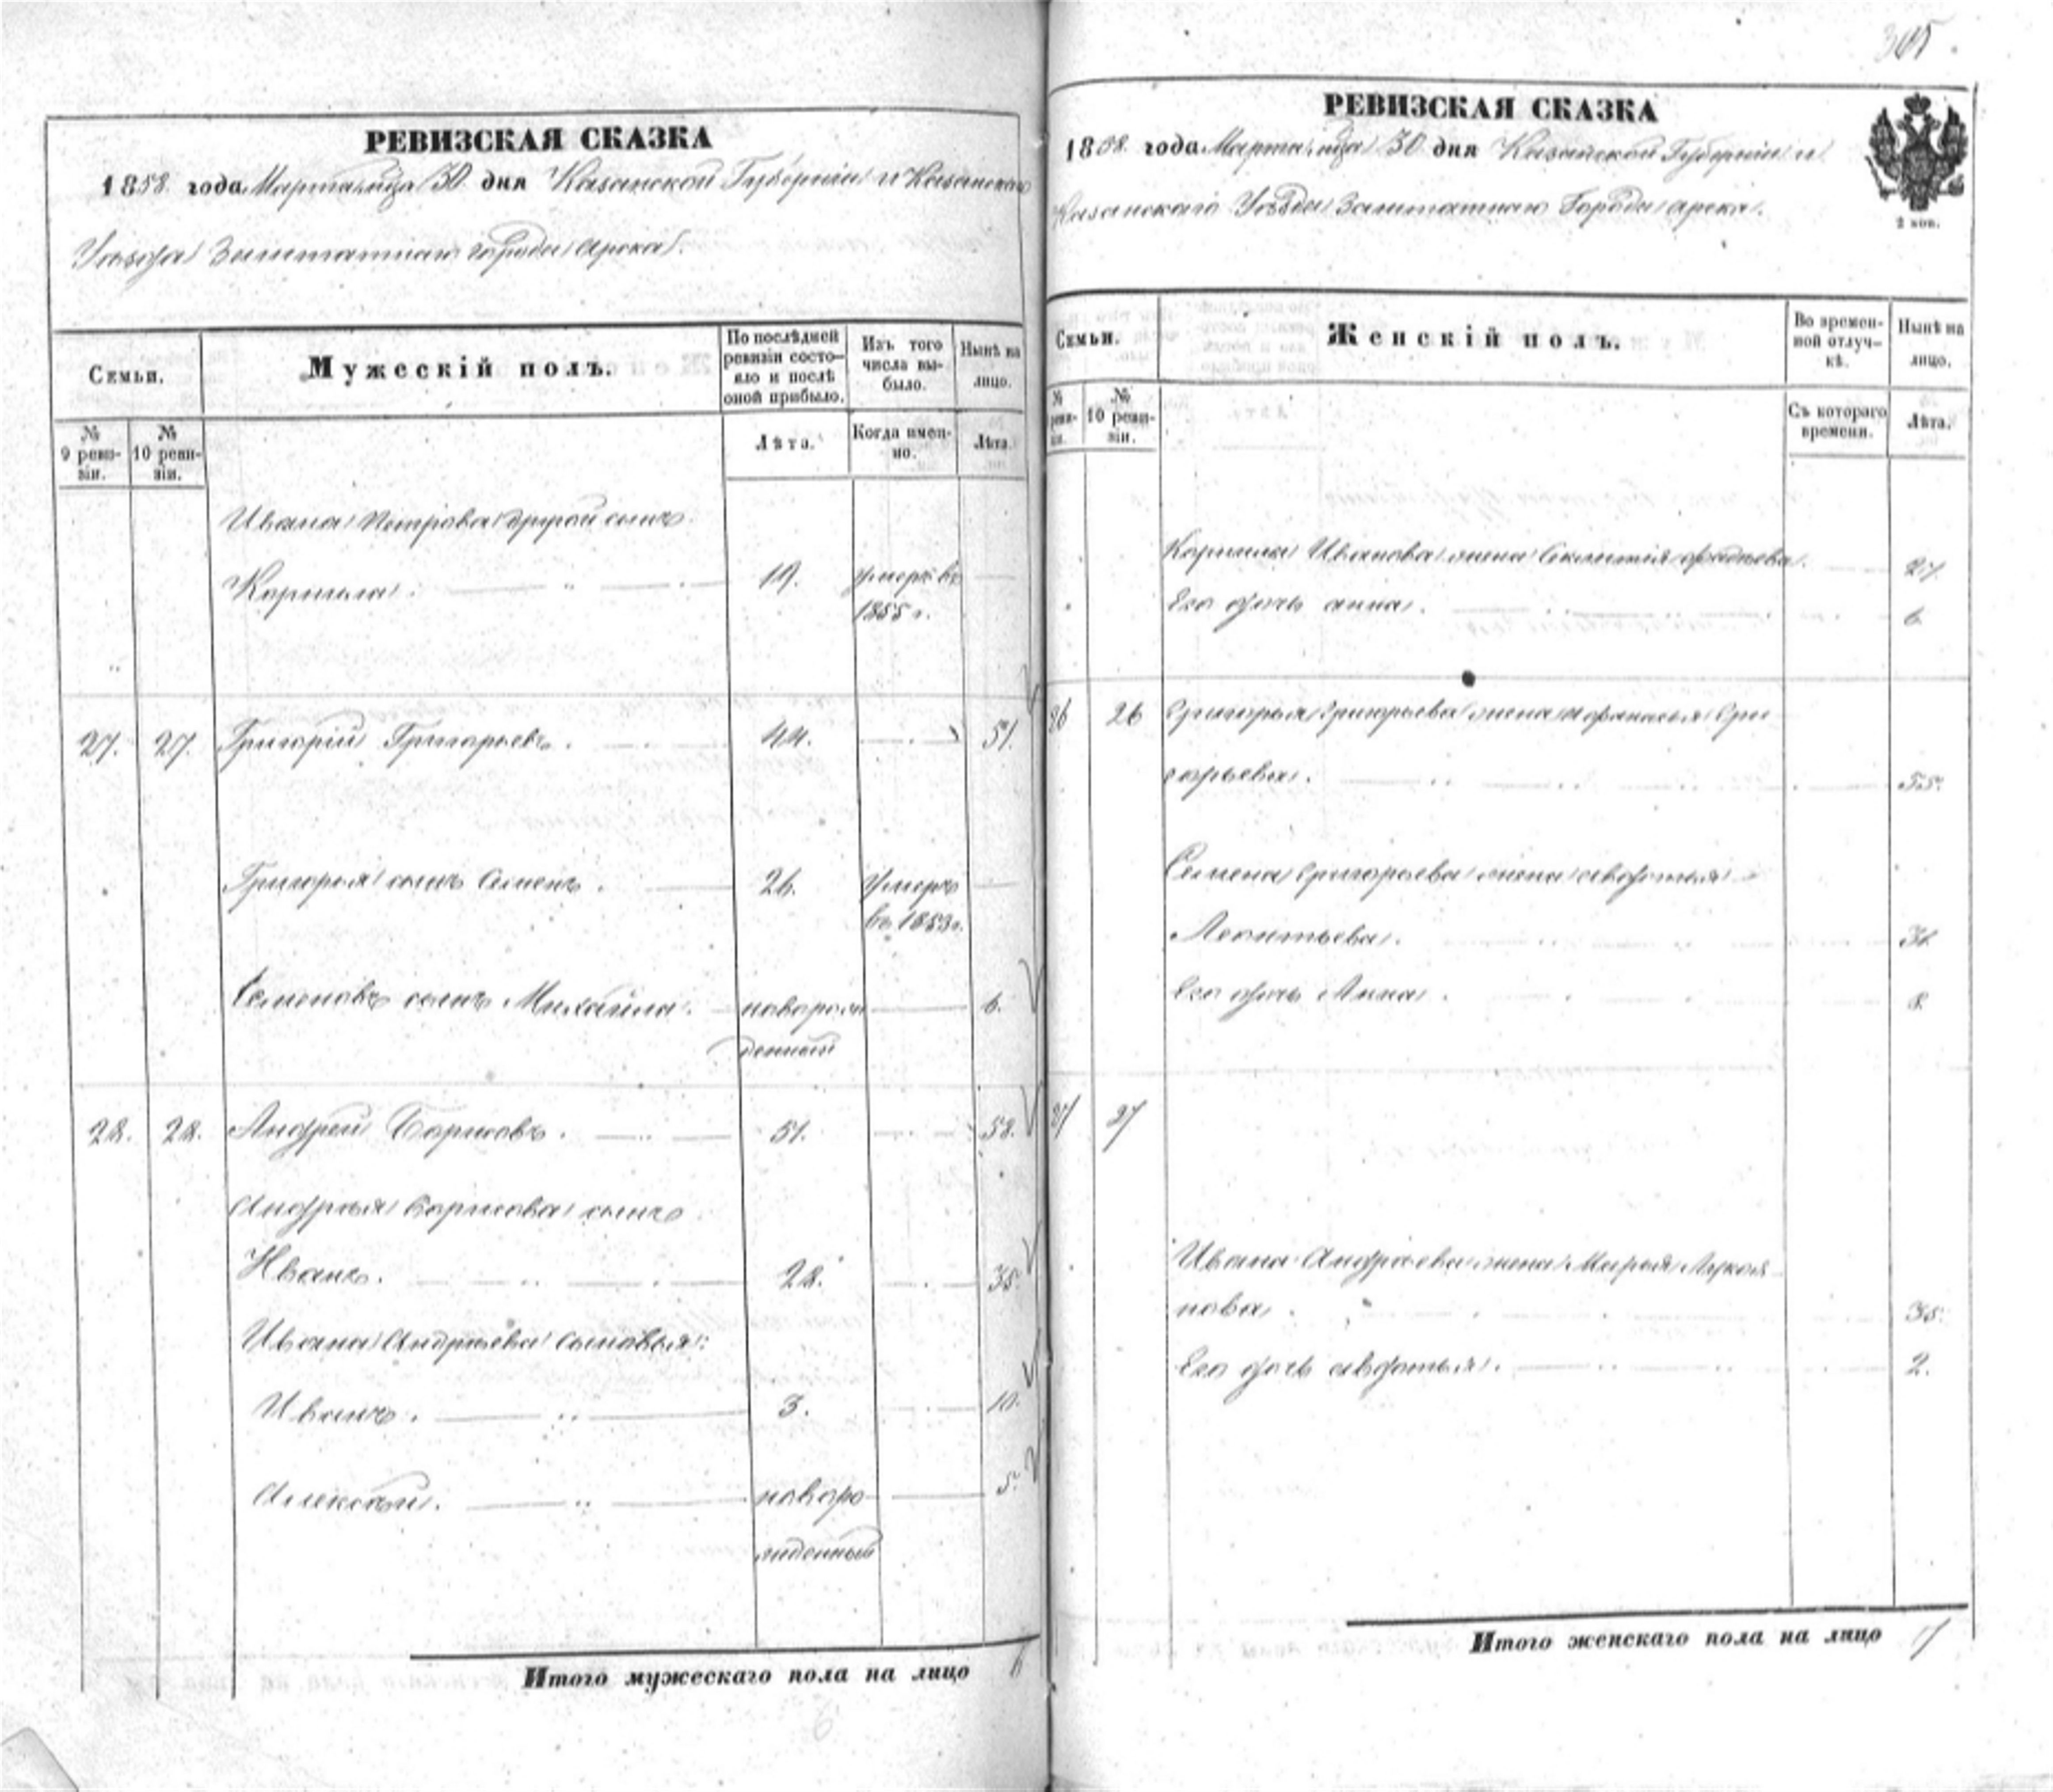 РЕВИЗСКАЯ СКАЗКА
1858 года Марта мца 30 дня Казанской Губерніи и Казанскаго
Уѣзда Заштатнаго города Арска.
Семьи.
Мужескій полъ.
По послѣдней ревизіи состояло и послѣ оной прибыло.
Изъ того числа выбыло.
Нынѣ на лицо.
№ 9 ревизіи.
№ 10 ревизіи.
Лѣта.
Когда именно.
Лѣта.
Ивана Петрова другой сынъ
Корнила. 19. умеръ въ
1855 г.
27. 27. Григорій Григорьевъ. 44. 51.
Григорья сынъ Семенъ. 26. Умеръ
въ 1853 г.
Семеновъ сынъ Михайла. новорож 6.
денный
28. 28. Андрей Борисовъ. 51. 58.
Андрея Борисова сынъ
Иванъ. 28. 35.
Ивана Андреева сыновья:
Иванъ. 3. 10.
Алексей. новоро 5.
жденный
Итого мужескаго пола на лицо 6
365.
РЕВИЗСКАЯ СКАЗКА
1858 года Марта мца 30 дня Казанской Губерніи и
Казанскаго Уѣзда Заштатнаго Города Арска.
2 коп.
Семьи.
Женскій полъ.
Во временной отлучкѣ.
Нынѣ на лицо.
№ реви-зіи.
№ 10 ревизіи.
Съ котораго времени.
Лѣта.
Корнила Иванова жена 27.
Его дочь Анна. 6.
26 26 Григорья Григорьева жена Афанасья Гри
горьева. 55.
Семена Григорьева жена Авдотья
Леонтьева. 31.
Его дочь Анна. 8.
27 27
Ивана Андреева жена Марья Лукоя
нова. 35.
Его дочь Авдотья. 2.
Итого женскаго пола на лицо 7